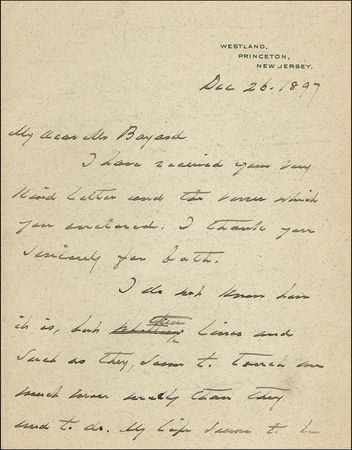 WESTLAND,
PRINCETON,
NEW JERSEY.
Dec 26. 1897
My dear Mr Bayard
I have received your very
kind letter and the verses which
you enclosed. I thank you
sincerely for both.
I do not know how
it is, but these lines and
such as they, seem to touch me
much more nearly than they
used to do. My life seems to be